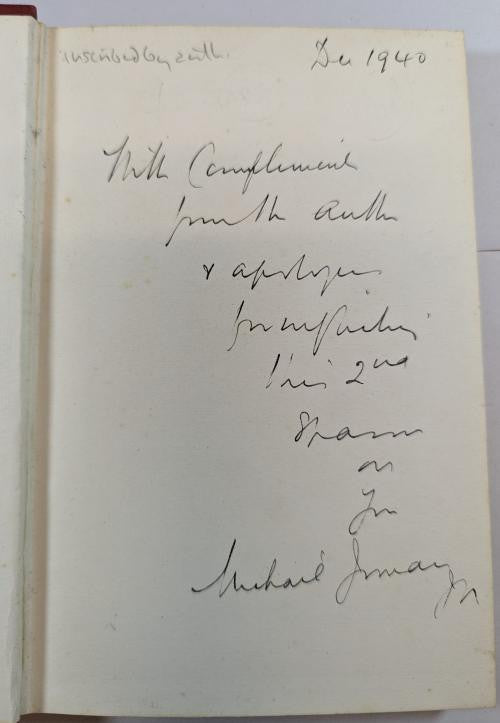 inscribed by auth.
Dec 1940
With Compliments
from the Author
& apologies
for inflicting
this 2nd
on
you
Michael